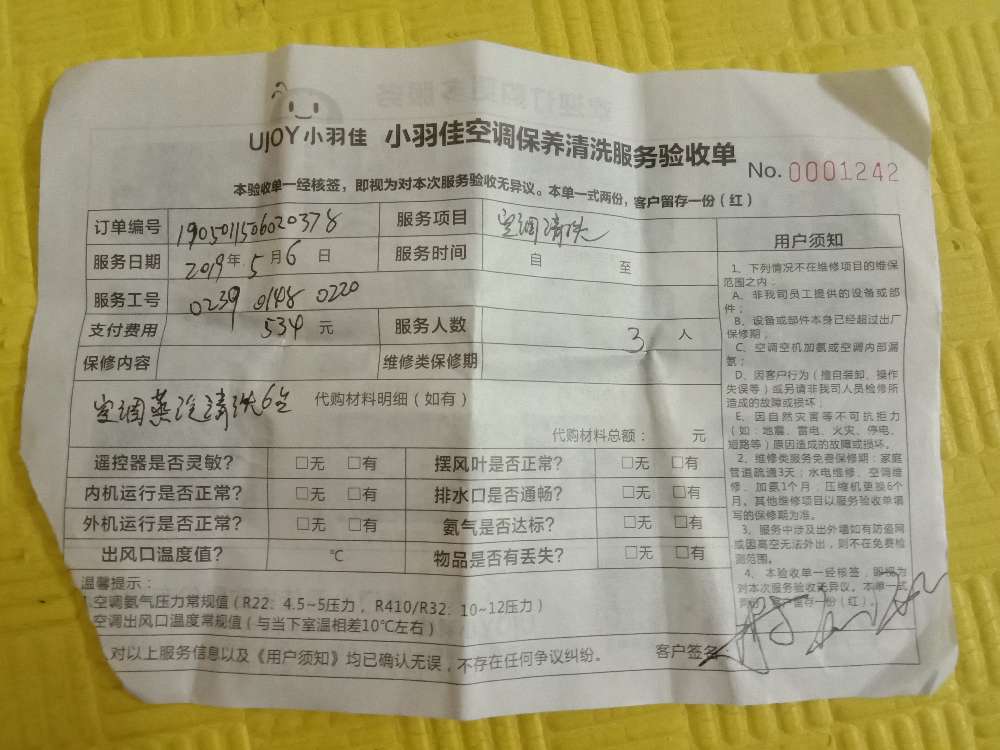 UJOY小羽佳 小羽佳空调保养清洗服务验收单
No. 0001242
本验收单一经核签，即视为对本次服务验收无异议。本单一式两份，客户留存一份（红）
订单编号 1905011506020378 服务项目 空调清洗
服务日期 2019年5月6日 服务时间 自 至
服务工号 0239 0148 0220
支付费用 534 元 服务人数 3 人
保修内容 维修类保修期
空调蒸汽清洗6台 代购材料明细（如有）
代购材料总额： 元
遥控器是否灵敏？ □无 □有 摆风叶是否正常？ □无 □有
内机运行是否正常？ □无 □有 排水口是否通畅？ □无 □有
外机运行是否正常？ □无 □有 氨气是否达标？ □无 □有
出风口温度值？ ℃ 物品是否有丢失？ □无 □有
温馨提示：
空调氨气压力常规值（R22：4.5~5压力，R410/R32：10~12压力）
空调出风口温度常规值（与当下室温相差10℃左右）
对以上服务信息以及《用户须知》均已确认无误，不存在任何争议纠纷。 客户签名：
用户须知
1、下列情况不在维修项目的维保
范围之内：
A、非我司员工提供的设备或部
件；
B、设备或部件本身已经超过出厂
保修期；
C、空调空机加氨或空调内部漏
氨；
D、因客户行为（擅自装卸、操作
失误等）或另请非我司人员检修所
造成的故障或损坏；
E、因自然灾害等不可抗拒力
（如：地震、雷电、火灾、停电、
短路等）原因造成的故障或损坏。
2、维修类服务免费保修期：家庭
管道疏通3天；水电维修、空调维
修、加氨1个月；压缩机更换6个
月。其他维修项目以服务验收单填
写的保修期为准。
3、服务中涉及出外墙如有防盗网
或因高空无法外出，则不在免费检
测范围。
4、本验收单一经核签，即视为
对本次服务验收无异议。本单一式
两份，客户留存一份（红）。